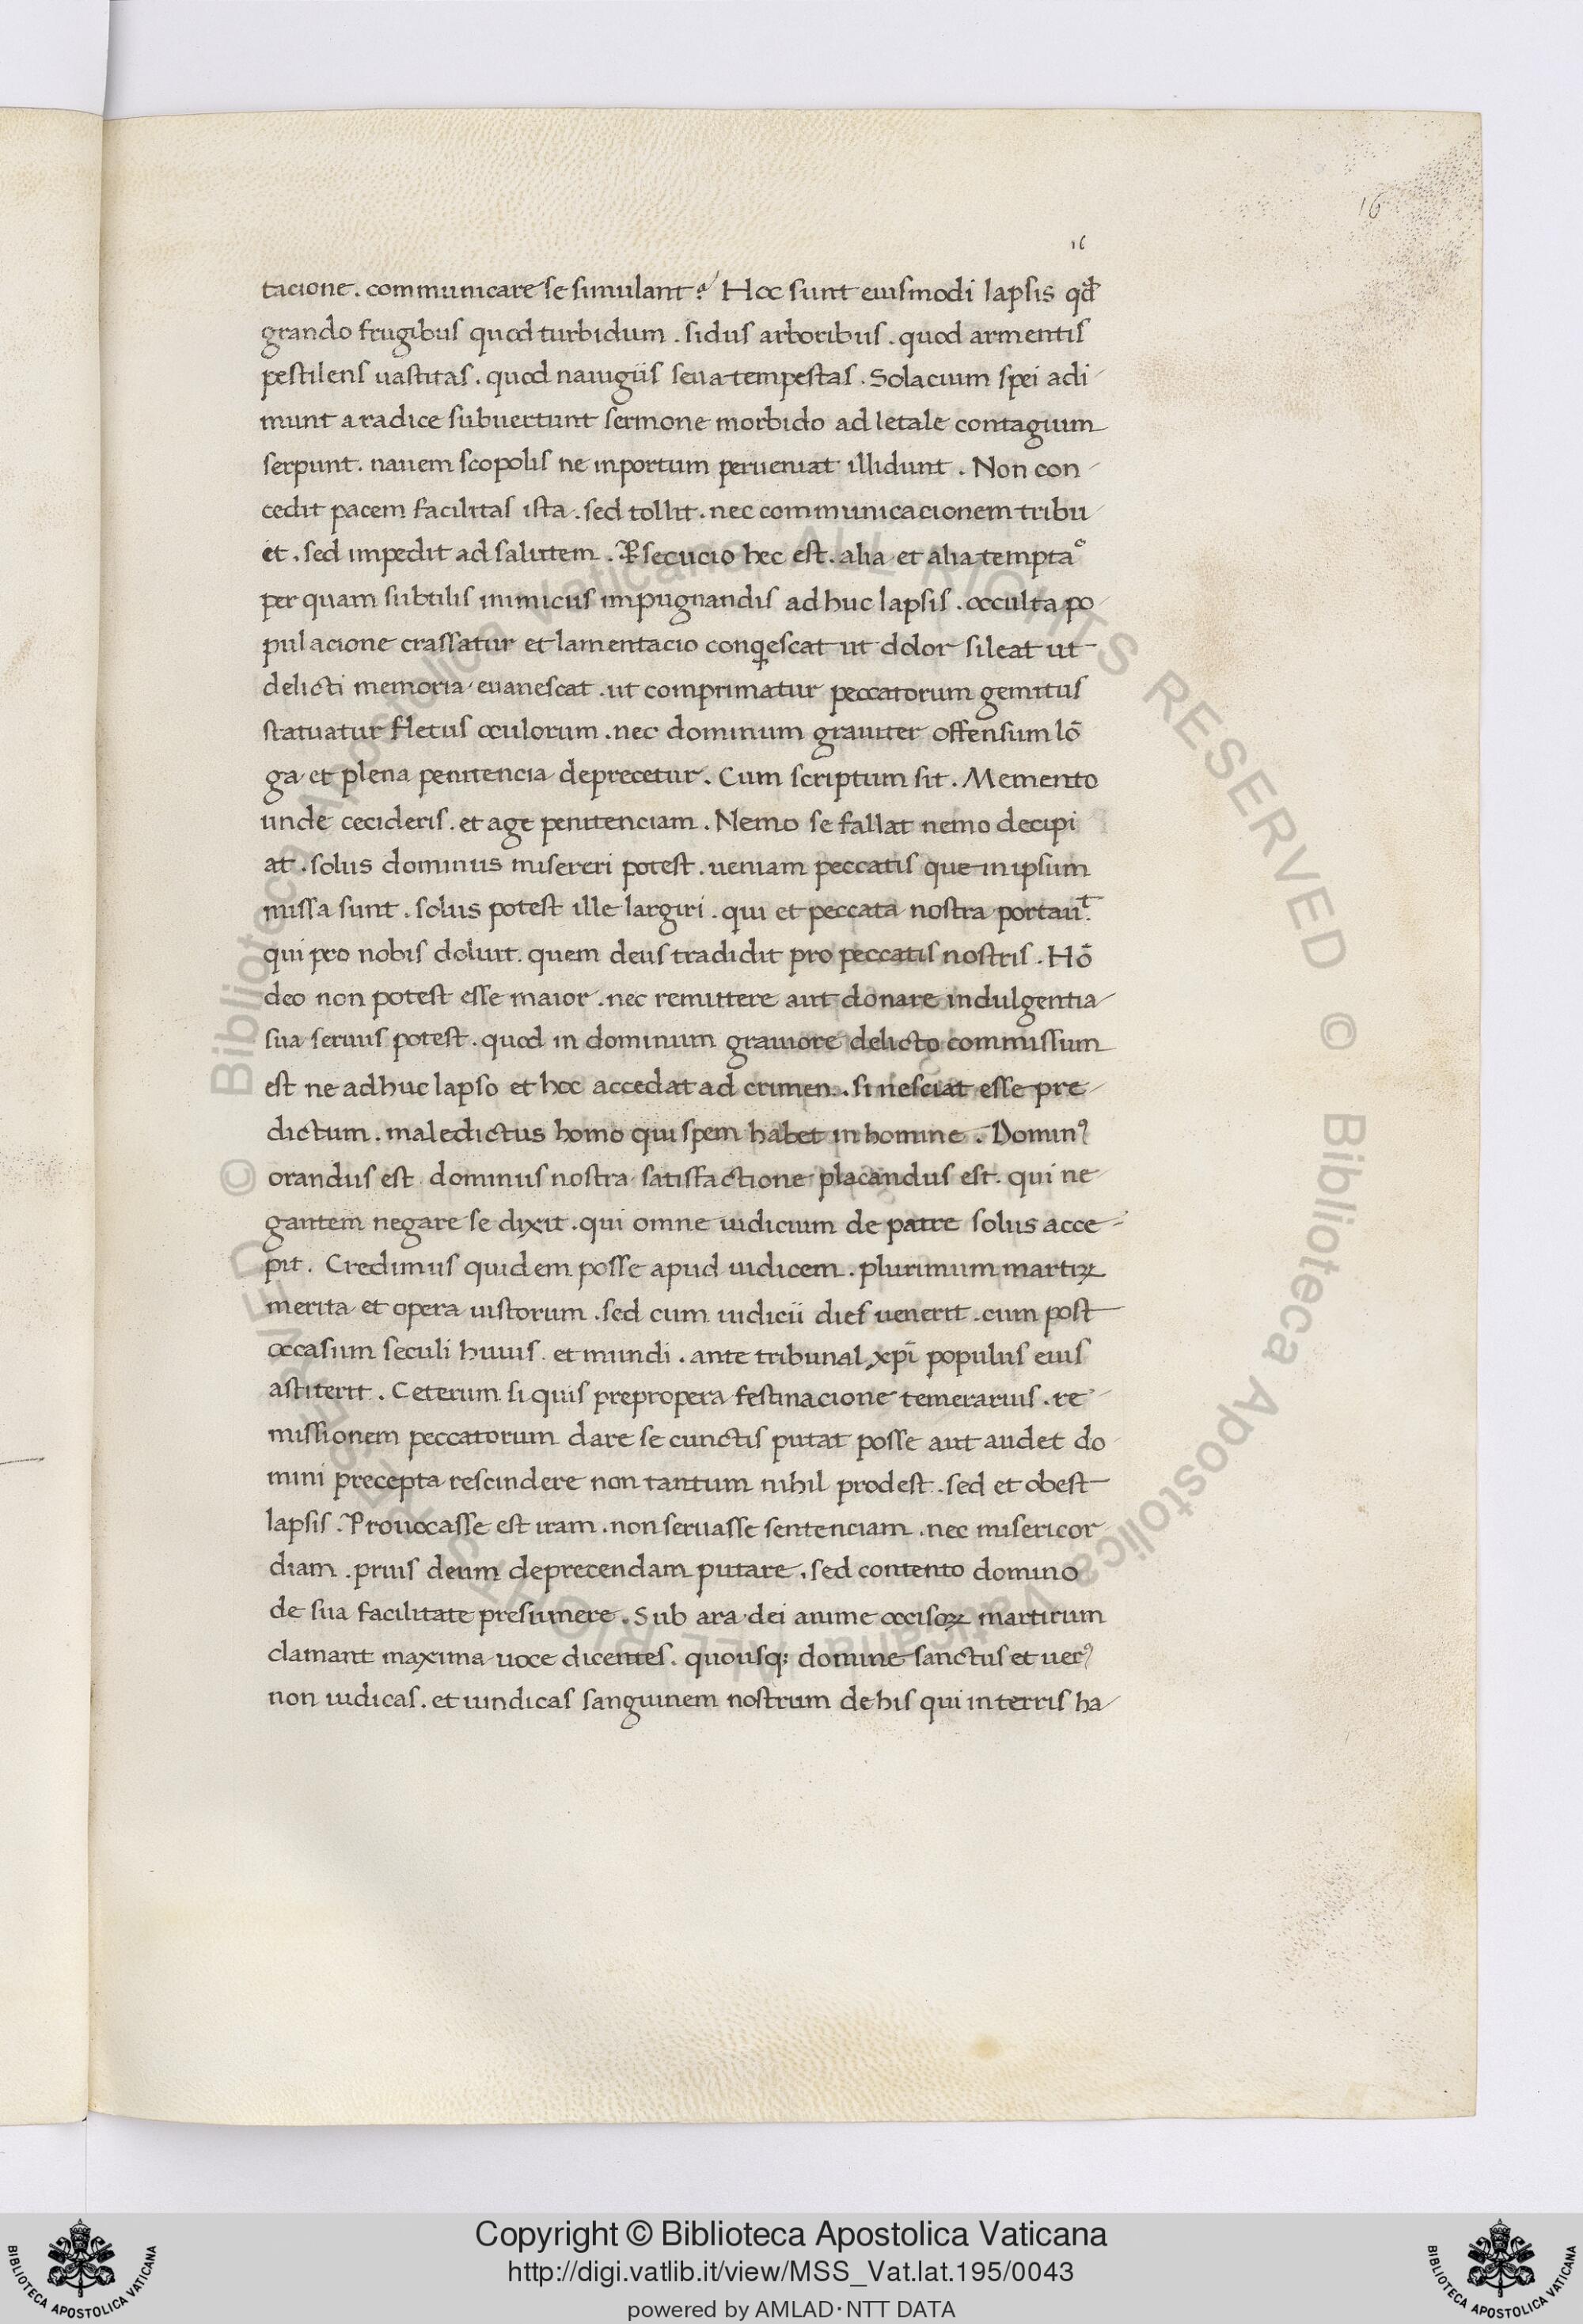 16
16
tacione . communicare se simulant ? Hoc sunt eiusmodi lapsis qđ
grando frugibus quod turbidum . sidus arboribus . quod armentis
pestilens uastitas . quod nauigiis seua tempestas . Solacium spei adi
munt a radice subuertunt sermone morbido ad letale contagium
serpunt . nauem scopolis ne inportum perueniat illidunt . Non con
cedit pacem facilitas ista . sed tollit . nec communicacionem tribu
et . sed impedit ad salutem . Ꝑsecucio hec est . alia et alia temptaͦ
per quam subtilis inimicus impugnandis adhuc lapsis . occulta po
pulacione crassatur et lamentacio conqͥescat ut dolor sileat ut
delicti memoria euanescat . ut comprimatur peccatorum gemitus
statuatur fletus oculorum . nec dominum grauiter offensum lō
ga et plena penitencia deprecetur . Cum scriptum sit . Memento
unde cecideris . et age penitenciam . Nemo se fallat nemo decipi
at . solus dominus misereri potest . ueniam peccatis que in ipsum
missa sunt . solus potest ille largiri . qui et peccata nostra portauͭ.
qui pro nobis doluit . quem deus tradidit pro peccatis nostris . Hō
deo non potest esse maior . nec remittere aut donare indulgentia
sua seruus potest . quod in dominum grauiore delicto commissum
est ne adhuc lapso et hoc accedat ad crimen . si nesciat esse pre
dictum . maledictus homo qui spem habet in homine . Dominꝰ
orandus est . dominus nostra satisfactione placandus est . qui ne
gantem negare se dixit . qui omne iudicium de patre solus acce
pit . Credimus quidem posse apud iudicem . plurimum martiꝝ
merita et opera iustorum . sed cum iudicii dies uenerit . cum post
occasum seculi huius . et mundi . ante tribunal xp̄i populus eius
astiterit . Ceterum si quis prepropera festinacione temerarius . re
missionem peccatorum dare se cunctis putat posse aut audet do
mini precepta rescindere non tantum nihil prodest . sed et obest
lapsis . Prouocasse est iram . non seruasse sentenciam . nec misericor
diam . prius deum deprecendam putare . sed contento domino
de sua facilitate presumere . Sub ara dei anime occisoꝝ martirum
clamant maxima uoce dicentes . quousq; domine sanctus et uerꝰ
non iudicas . et uindicas sanguinem nostrum de his qui in terris ha
© Biblioteca Apostolica Vaticana ALL RIGHTS RESERVED © Biblioteca Apostolica Vaticana ALL RIGHTS RESERVED
Copyright © Biblioteca Apostolica Vaticana
http://digi.vatlib.it/view/MSS_Vat.lat.195/0043
powered by AMLAD·NTT DATA
BIBLIOTECA APOSTOLICA VATICANA
BIBLIOTECA APOSTOLICA VATICANA